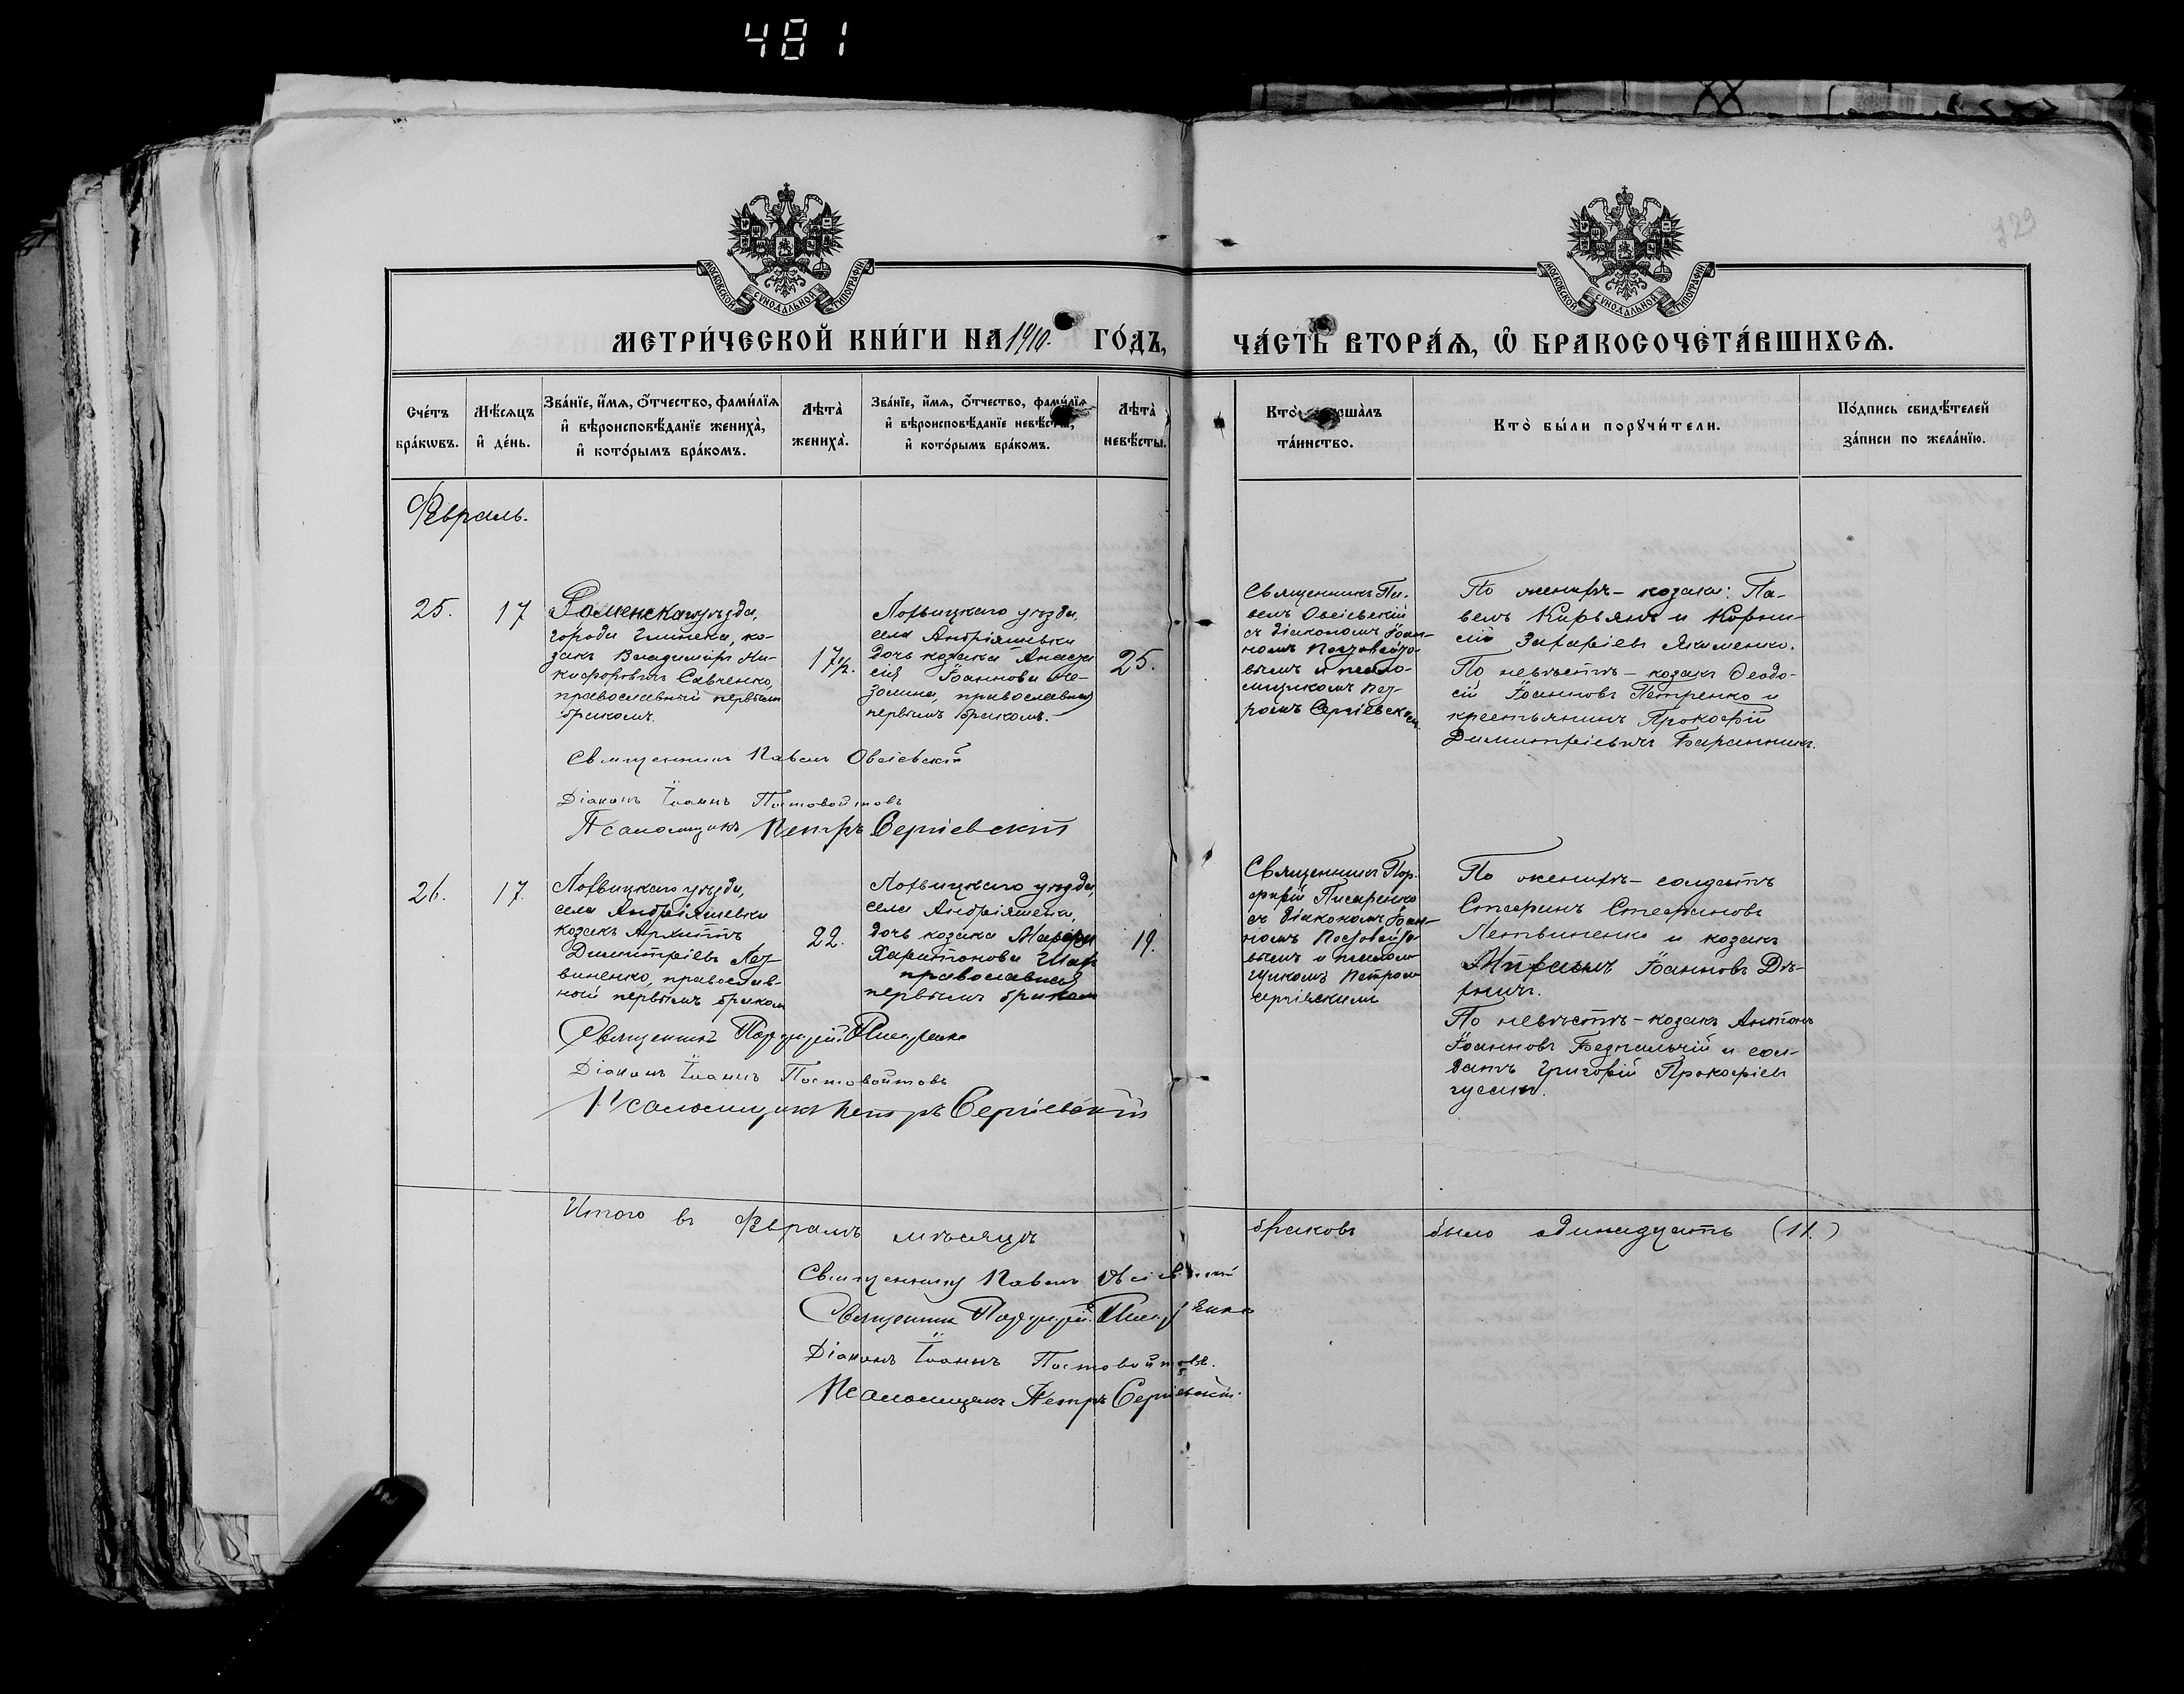 481
129
МОСКОВСКОЙ СѴНОДАЛЬНОЙ ТИПОГРАФІИ
МОСКОВСКОЙ СѴНОДАЛЬНОЙ ТИПОГРАФІИ
МЕТРИ́ЧЕСКОЙ КНИ́ГИ НА 1910. ГО́ДЪ,
ЧА́СТЬ ВТОРА́Ѧ, Ѽ БРАКОСОЧЕТА́ВШИХСѦ.
Сче́тъ бра́кѡвъ.
Мѣ́сяцъ и҆ де́нь.
Зва́нїе, и҆́мя, ѻ҆́тчество, фами́лїя
и҆ вѣроисповѣ́данїе жениха̀,
и҆ кото́рымъ бра́комъ.
Лѣта̀ жениха̀.
Зва́нїе, и҆́мя, ѻ҆́тчество, фами́лїя
и҆ вѣроисповѣ́данїе невѣ́сты,
и҆ кото́рымъ бра́комъ.
Лѣта̀ невѣ́сты.
Кто̀
та́инство.
Кто̀ бы́ли порꙋчи́тели.
По́дпись свидѣ́телей
за́писи по жела́нїю.
Февраль.
25.
17
Роменскаго уѣзда,
города Глинска, ко-
закъ Владиміръ Ни-
кифоровичъ Савченко,
православный первымъ
бракомъ.
17½.
Лохвицкаго уѣзда,
села Андріяшевки
дочь козака Анаста
сія Іоаннова
православная
первымъ бракомъ.
25.
Священникъ Па-
велъ Овсіевскій
съ діакономъ Іоан-
номъ Постовойто-
вымъ и псало-
мщикомъ Пет-
ромъ Сергіевскимъ
По женихѣ - козаки: Па-
велъ Кирьянъ и Корни-
лій Захаріевъ Якименко.
По невѣстѣ - козакъ Ѳеодо-
сій Іоанновъ Петренко и
крестьянинъ Прокофій
Димитріевичъ Баранникъ.
Священникъ Павелъ Овсіевскій
Діаконъ Іоаннъ Постовойтовъ
Псаломщикъ Петръ Сергіевскій
26.
17.
Лохвицкаго уѣзда,
села Андріяшевки
козакъ Архиппъ
Димитріевъ Лит-
виненко, православ-
ный первымъ бракомъ
22.
Лохвицкаго уѣзда,
села Андріяшевки,
дочь козака
Харитонова
православная
первымъ бракомъ
19.
Священникъ Пор-
фирій Писаренко
съ діакономъ Іоан-
номъ Постовойто-
вымъ и псалом-
щикомъ Петромъ
Сергіевскимъ
По женихѣ - солдатъ
Стефанъ Стефановъ
Литвиненко и козакъ
Іоанновъ
По невѣстѣ - козакъ Антонъ
Іоанновъ Безпалый и сол-
датъ Григорій Прокофіевъ
Священникъ Порфирій Писаренко
Діаконъ Іоаннъ Постовойтовъ
Псаломщикъ Петръ Сергіевскій
Итого въ Февралѣ мѣсяцѣ браковъ было одинадцать (11.)
Священникъ Павелъ Овсіевскій
Священникъ Порфирій Писаренко
Діаконъ Іоаннъ Постовойтовъ.
Псаломщикъ Петръ Сергіевскій.